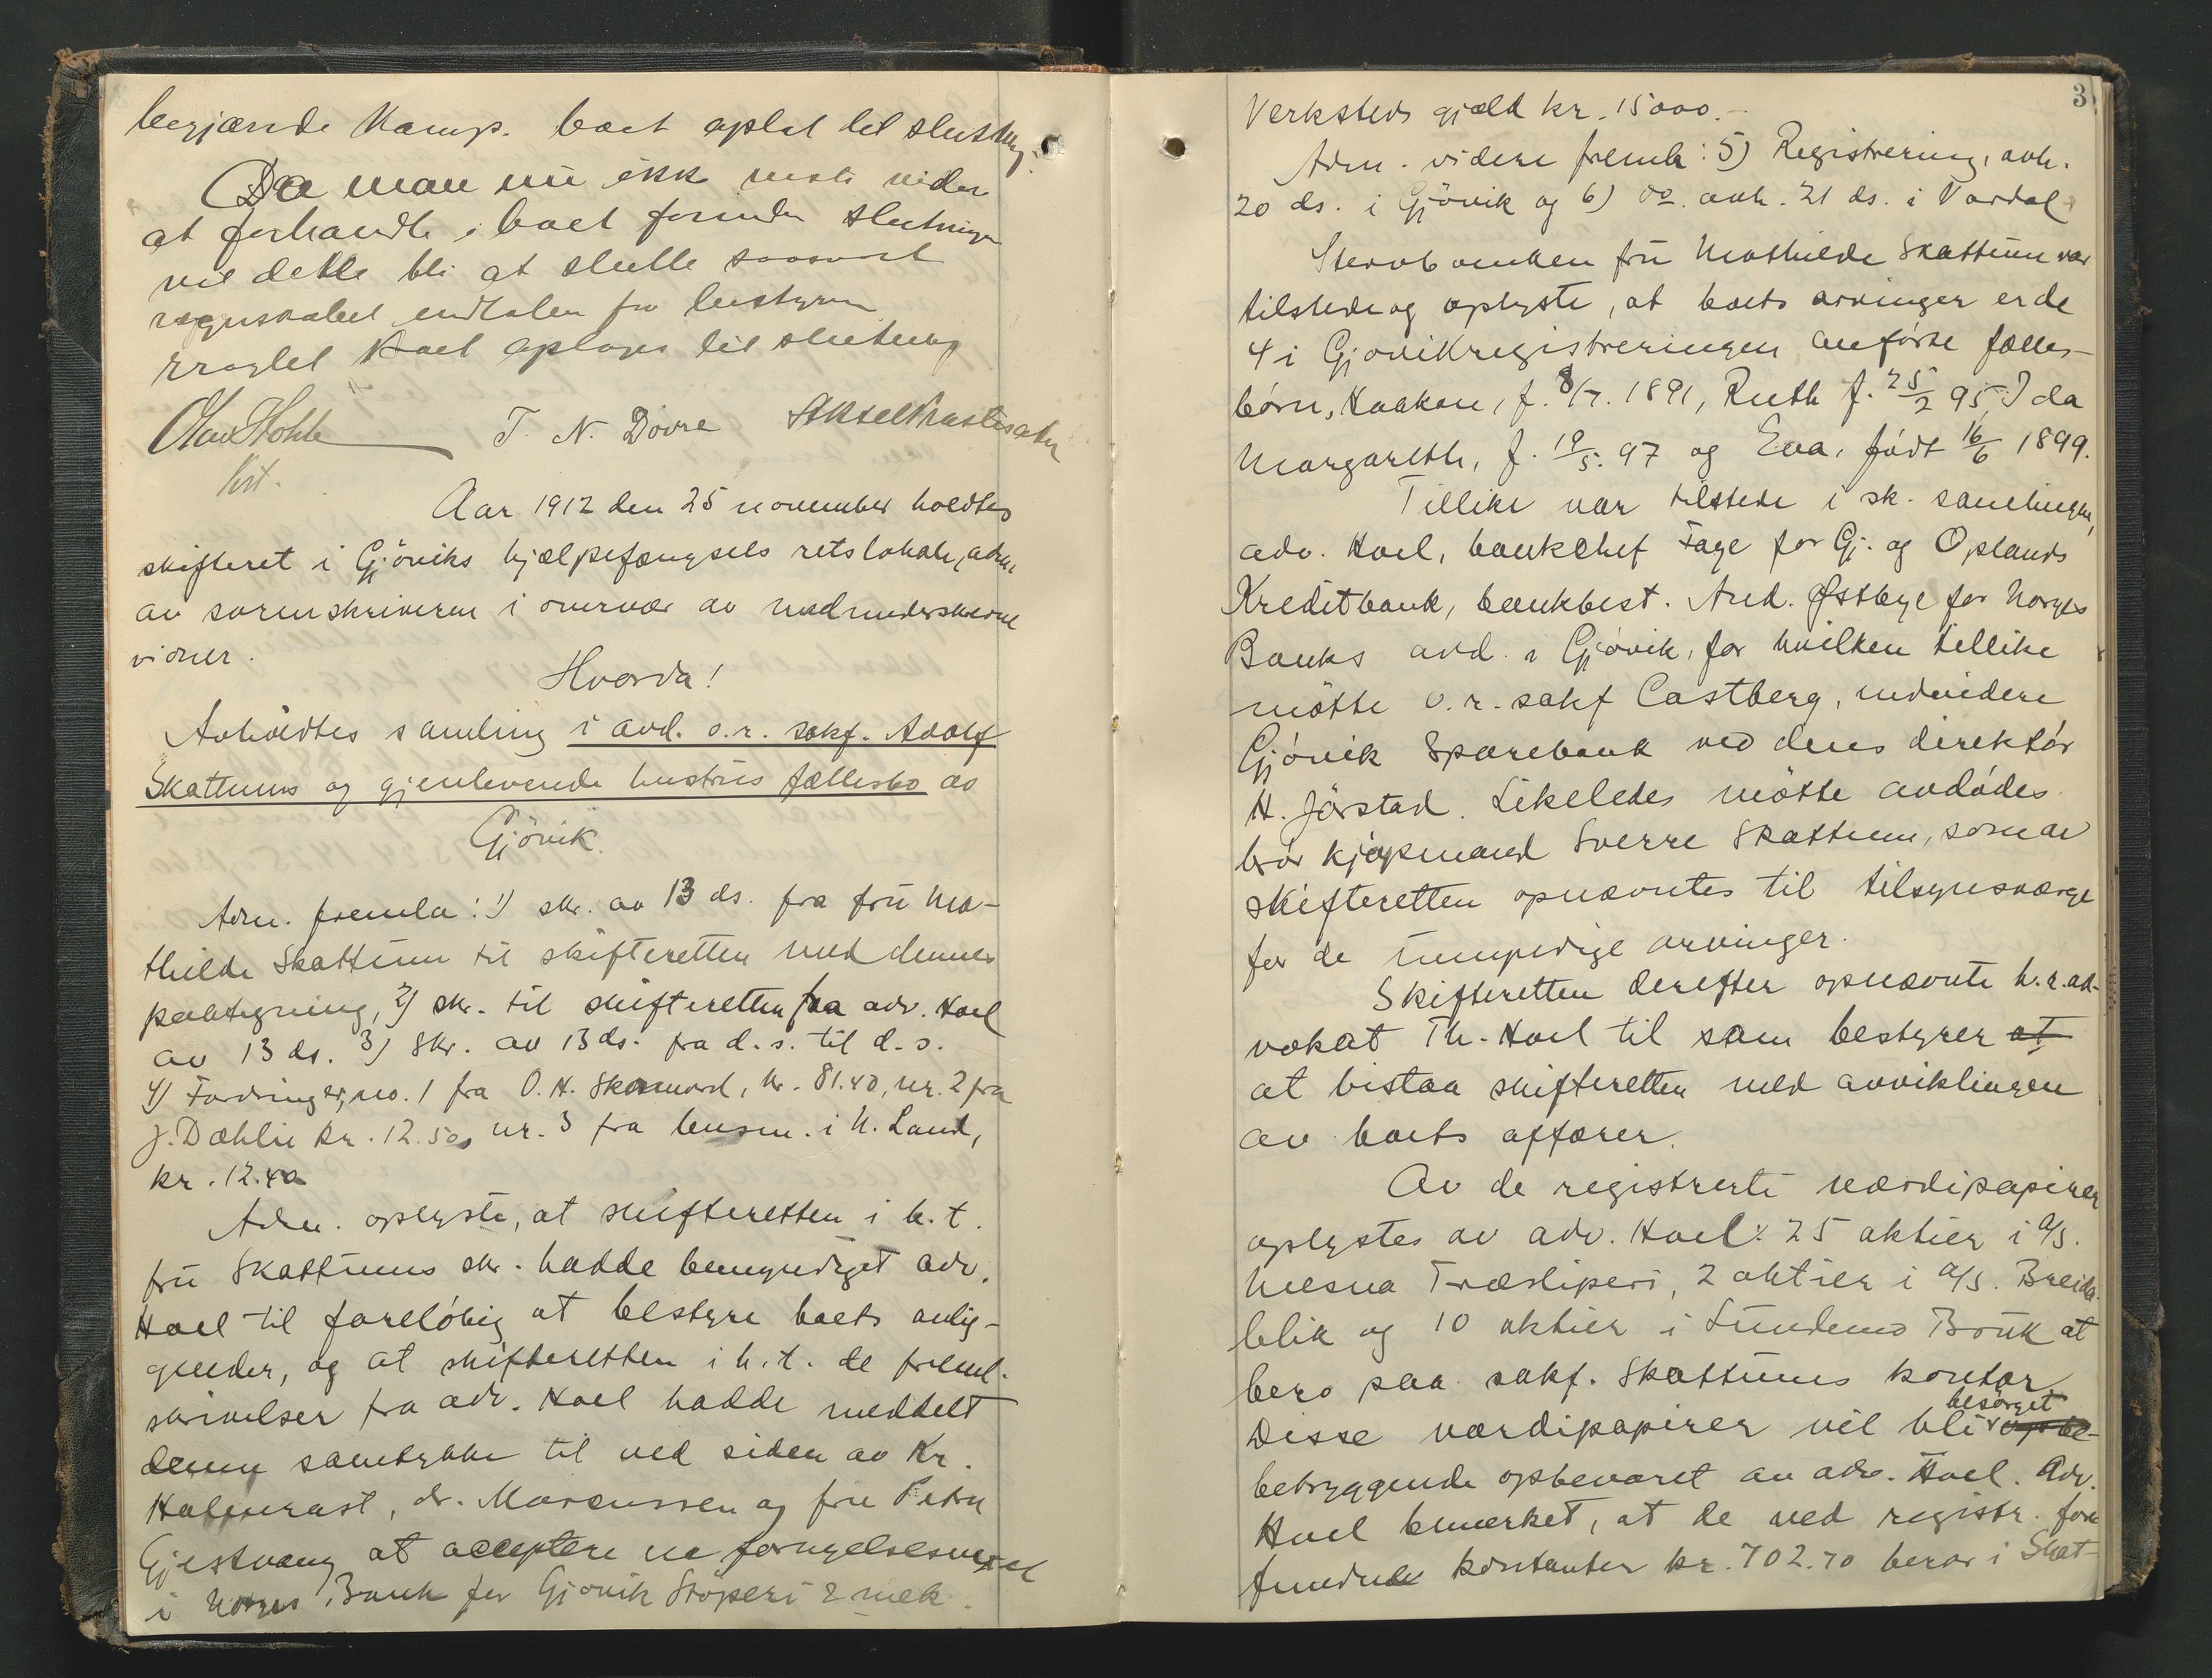 begjærede Kamp. boet optat til slutning.
Da man nu ikke veste videre
at forhandle i boet forinden slutningen
vil dette bli at slutte saasnart
regnskabet indtalen fra bestyreren
Boet optages til slutning
Olav Hohle T. N. Dovre
kst.
Aar 1912 den 25 november holdtes
skifteret i Gjöviks hjælpefængsels retslokale, adm.
av sorenskriveren i overvær av nedunderskrevne
vidner.
Hvorda!
Avholdtes samling i avd. o.r. sakf. Adolf
Skattums og gjenlevende hustrus fællesbo av
Gjövik.
Adm. fremla: 1) skr. av 13 ds. fra fru Ma-
thilde Skattum til skifteretten med dennes
paategning, 2) skr. til skifteretten fra adv. Hoel
av 13 ds. 3) Skr. av 13 ds. fra d. s. til d. s.
4) Fordringer, no. 1 fra O. H. Skonnord, kr. 81.40, nr. 2 fra
J. Dæhlie kr. 12.50, nr. 3 fra lensm. i N. Land,
kr. 12.40
Adm. oplyste, at skifteretten i h. t.
fru Skattums skr. hadde bemyndiget adv.
Hoel til foreløbig at bestyre boets anlig-
gender, og at skifteretten i h. t. de freml.
skrivelser fra adv. Hoel hadde meddelt
denne samtykke til ved siden av Kr.
Halmrast, dr. Marcussen og fru Petra
Gjestvang at acceptere en fornyelsesvexel
i Norges Bank for Gjövik Stöperi & mek.
3
Verksteds gjæld kr. 15000.-
Adm. videre freml: 5) Registrering, avh.
20 ds. i Gjövik og 6) do. avh. 21 ds. i Vardal
Stervboenken fru Mathilde Skattum var
tilstede og oplyste, at boets arvinger er de
4 i Gjøvikregistreringen anførte fælles-
børn, Haakon, f. 8/7. 1891, Ruth f. 25/2 95, Ida
Margareth, f. 19/5. 97 og Eva, født 16/6 1899.
Tillike var tilstede i sk. samlingen,
adv. Hoel, bankchef Fage for Gj. og Oplands
Kreditbank, bankbest. And. Østbye for Norges
Banks avd. i Gjøvik, for hvilken tillike
mötte o. r. sakf Castberg, endvidere
Gjövik Sparebank ved dens direktör
H. Jørstad. Likeledes mötte avdødes
bror kjøpmand Sverre Skattum, som av
skifteretten opnævntes til tilsynsværge
for de umyndige arvinger.
Skifteretten derefter opnævnte h. r. ad-
vokat Th. Hoel til som bestyrer at
at bistaa skifteretten med avviklingen
av boets affærer.
Av de registrerte værdipapirer
oplystes av adv. Hoel: 25 aktier i A/S.
Mesna Træsliperi, 2 aktier i A/S. Breida-
blik og 10 aktier i Lundemo Bruk at
bero paa sakf. Skattums kontor.
Disse værdipapirer vil bli besörget
betryggende opbevaret av adv. Hoel. Adv.
Hoel bemerket, at de ved registr. fore
fundne kontanter kr. 702.70 beror i Skat-